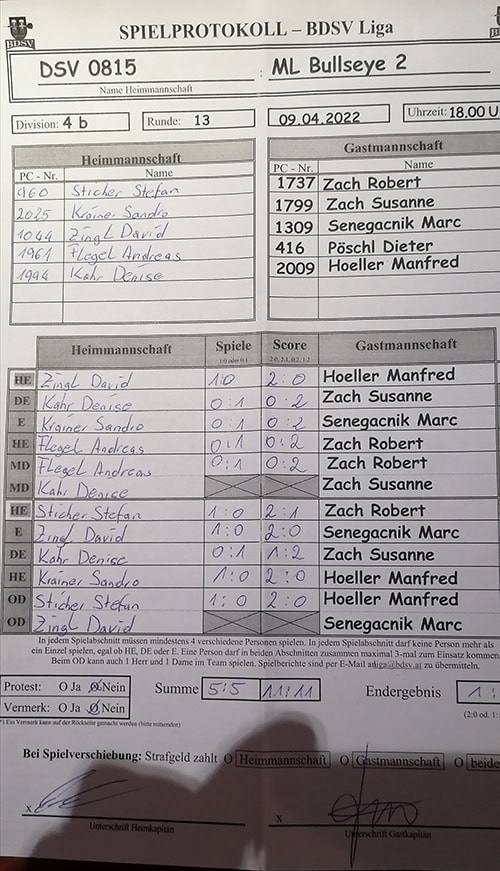 BDSV
SPIELPROTOKOLL – BDSV Liga
DSV 0815 : ML Bullseye 2
Name Heimmannschaft
Division: 4 b Runde: 13 09.04.2022 Uhrzeit: 18.00 U
Heimmannschaft Gastmannschaft
PC - Nr. Name PC - Nr. Name
960 Sticher Stefan 1737 Zach Robert
2025 Krainer Sandro 1799 Zach Susanne
1044 Zingl David 1309 Senegacnik Marc
1961 Flegel Andreas 416 Pöschl Dieter
1994 Kahr Denise 2009 Hoeller Manfred
Heimmannschaft Spiele Score Gastmannschaft
1:0 oder 0:1 2:0, 2:1, 0:2, 1:2
HE Zingl David 1:0 2:0 Hoeller Manfred
DE Kahr Denise 0:1 0:2 Zach Susanne
E Krainer Sandro 0:1 0:2 Senegacnik Marc
HE Flegel Andreas 0:1 0:2 Zach Robert
MD Flegel Andreas 0:1 0:2 Zach Robert
MD Kahr Denise Zach Susanne
HE Sticher Stefan 1:0 2:1 Zach Robert
E Zingl David 1:0 2:0 Senegacnik Marc
DE Kahr Denise 0:1 1:2 Zach Susanne
HE Krainer Sandro 1:0 2:0 Hoeller Manfred
OD Sticher Stefan 1:0 2:0 Hoeller Manfred
OD Zingl David Senegacnik Marc
In jedem Spielabschnitt müssen mindestens 4 verschiedene Personen spielen. In jedem Spielabschnitt darf keine Person mehr als
ein Einzel spielen, egal ob HE, DE oder E. Eine Person darf in beiden Abschnitten zusammen maximal 3-mal zum Einsatz kommen
Beim OD kann auch 1 Herr und 1 Dame im Team spielen. Spielberichte sind per E-Mail an liga@bdsv.at zu übermitteln.
Protest: O Ja O Nein Summe 5:5 11:11 Endergebnis 1:
Vermerk: O Ja O Nein (2:0 od. 1:
*) Ein Vermerk kann auf der Rückseite gemacht werden (bitte ankreuzen)
Bei Spielverschiebung: Strafgeld zahlt O Heimmannschaft O Gastmannschaft O beide
x x
Unterschrift Heimkapitän Unterschrift Gastkapitän